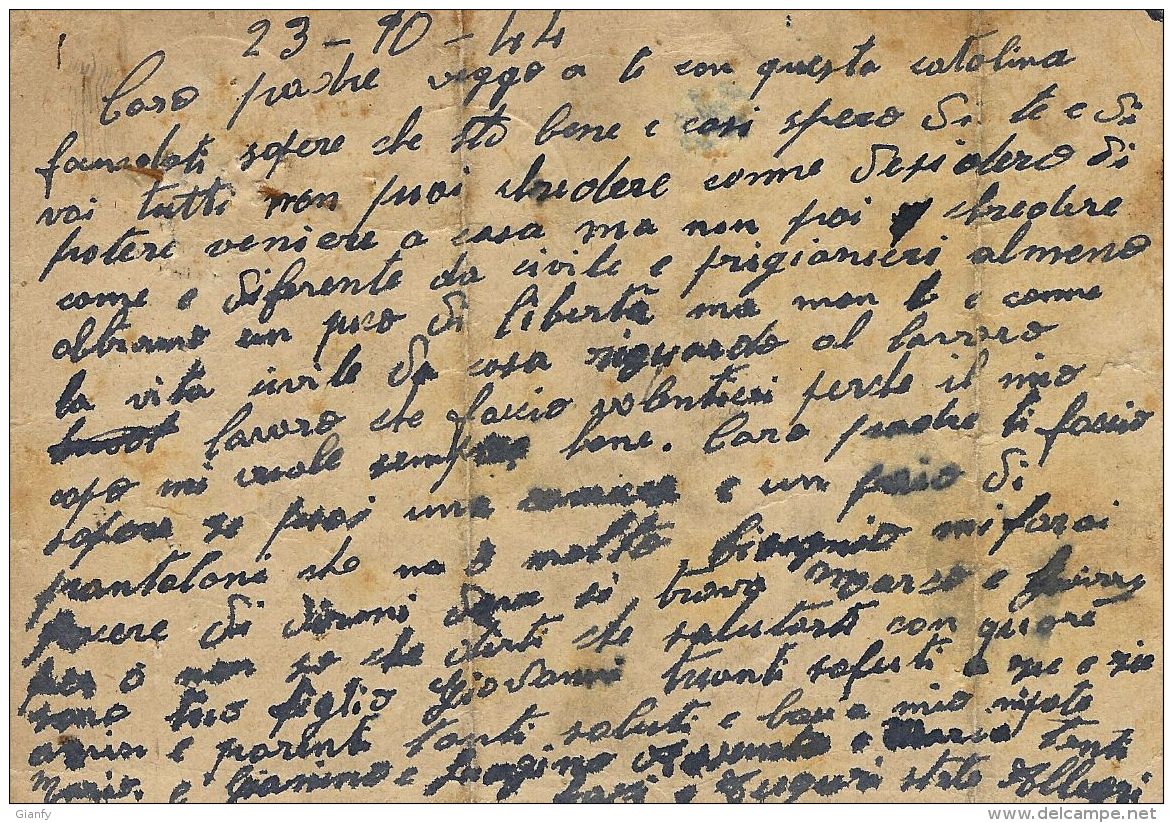 23-10-44
Caro padre veggo a te con questa catolina
fancoloti sapere che sto bene e cosi spero di te e di
voi tutti non puoi chredere conme desidero di
potere veniere a casa ma non poi chredere
come e diferente da civile e prigianieri almeno
abiamo un poco di libertà ma non le e conme
la vita civile da casa riguardo al lavoro
lavoro che faccio volontieri perche il mio
capo mi vuole sempre bene. Caro padre ti faccio
sapere se puoi una e un paio di
pantaloni che no o molto bisognio mi farai
piacere di dirmi dove si trova Marso e
per o non so che dirti che salutarti con quore
sono tuo figlio Giovanni tuanti saluti a zie e zio
amisi e parenti tanti saluti e baci a mio nipote
Mario e Gianino e e Marco tanti
baci e auguri state Allegri
Gianfy
delcampe.net